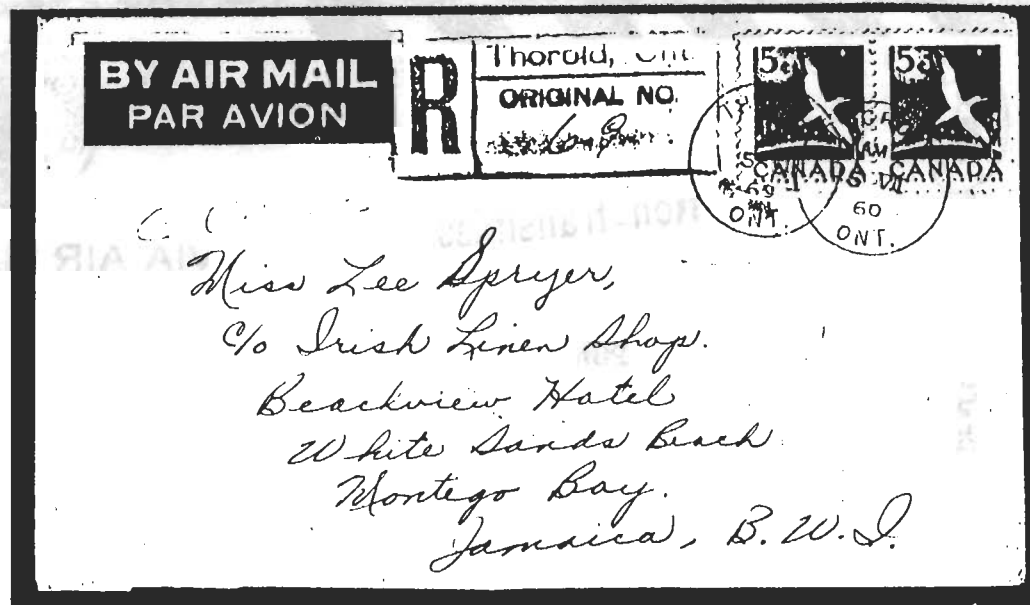 BY AIR MAIL
PAR AVION
R
Thorold, Ont.
ORIGINAL NO.
15¢
15¢
CANADA
CANADA
69
ONT.
AM
VII
60
ONT.
Miss Lee Spryer,
c/o Irish Linen Shop.
Beachview Hotel
White Sands Beach
Montego Bay.
Jamaica, B.W.I.